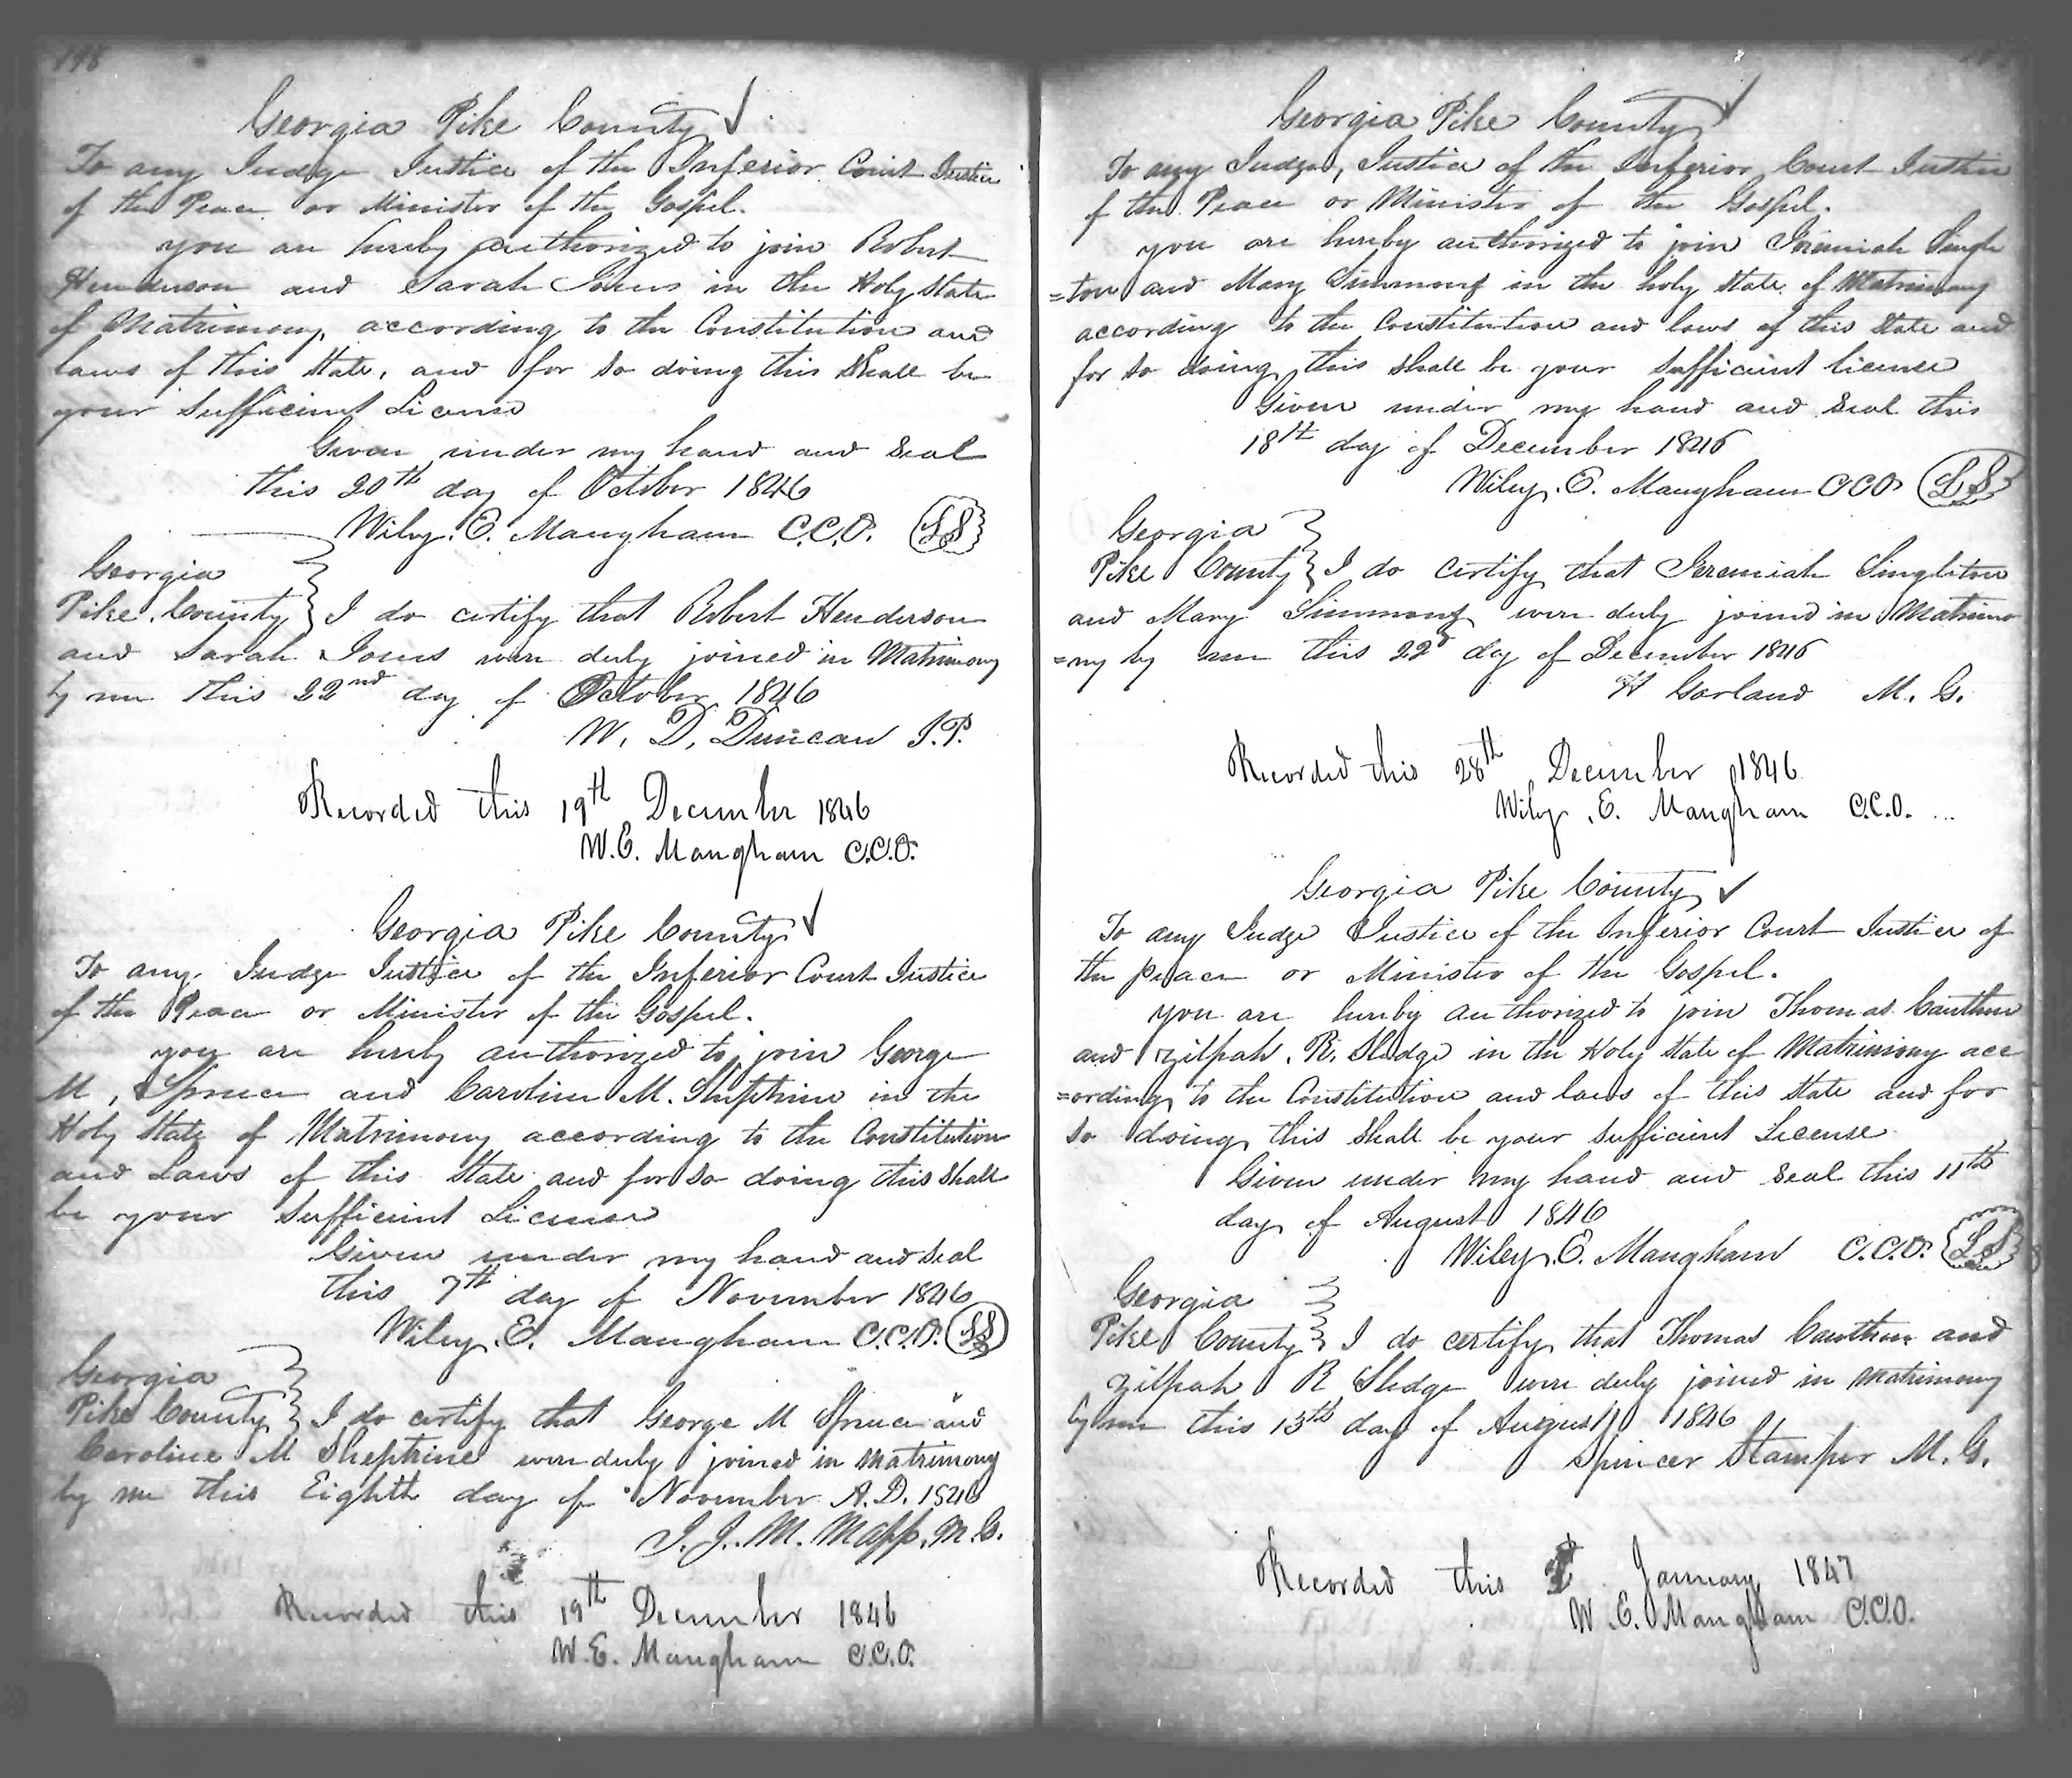 198
Georgia Pike County
To any Judge Justice of the Inferior Court Justice
of the Peace or Minister of the Gospel.
you are hereby authorized to join Robert
Henderson and Sarah Jones in the Holy State
of Matrimony, according to the Constitution and
laws of this State, and for so doing this Shall be
your Sufficient License
Given under my hand and Seal
this 20th day of October 1846
Wiley. E. Mangham C.C.O. LS
Georgia
Pike County } I do certify that Robert Henderson
and Sarah Jones were duly joined in Matrimony
by me this 22nd day of October 1846
W. D. Duncan J.P.
Recorded this 19th December 1846
W.E. Mangham C.C.O.
Georgia Pike County
To any Judge Justice of the Inferior Court Justice
of the Peace or Minister of the Gospel.
you are hereby authorized to join George
M, Spruce and Caroline M. Sheptrine in the
Holy State of Matrimony according to the Constitution
and Laws of this State and for so doing this Shall
be your Sufficient License
Given under my hand and Seal
this 7th day of November 1846
Wiley. E. Mangham C.C.O. LS
Georgia
Pike County } I do certify that George M Spruce and
Caroline M Sheptrine were duly joined in Matrimony
by me this Eighth day of November A.D. 1846
J. J. M. Mapp. M.G.
Recorded this 19th December 1846
W.E. Mangham C.C.O.
Georgia Pike County
To any Judge, Justice of the Inferior Court Justice
of the Peace or Minister of the Gospel.
you are hereby authorized to join Jeremiah Single
=ton and Mary Simmons in the holy State of Matrimony
according to the Constitution and laws of this State and
for So doing this Shall be your Sufficient license
Given under my hand and Seal this
18th day of December 1846
Wiley. E. Mangham CCO LS
Georgia
Pike County } I do certify that Jeremiah Singleton
and Mary Simmons were duly joined in Matrimo
=ny by me this 22d day of December 1846
H Garland M. G.
Recorded this 28th December 1846
Wiley .E. Mangham C.C.O.
Georgia Pike County
To any Judge Justice of the Inferior Court Justice of
the peace or Minister of the Gospel.
you are hereby authorized to join Thomas Cauthen
and Zilpah. R. Sledge in the Holy State of Matrimony acc
=ording to the Constitution and laws of this State and for
So doing this Shall be your Sufficient License
Given under my hand and Seal this 11th
day of August 1846
Wiley. E. Mangham C.C.O. LS
Georgia
Pike County } I do certify that Thomas Cauthen and
Zilpah R Sledge were duly joined in Matrimony
by me this 13th day of August 1846
Spincer Stamper M. G.
Recorded this January 1847
W. E. Mangham C.C.O.